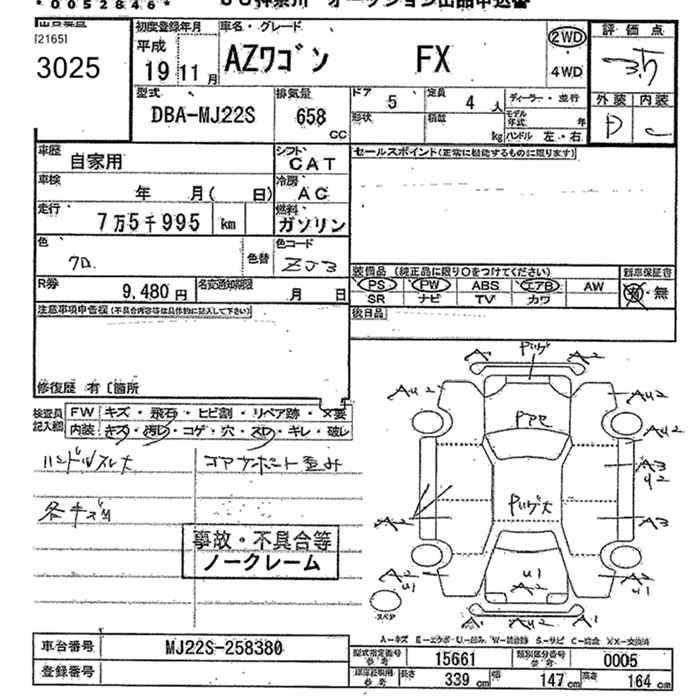 *0052846*
オークション出品申込書
[2165]
3025
初度登録年月
平成
19 11月
車名・グレード
AZワゴン FX
2WD
・
4WD
評価点
3.5
外装 内装
D C
型式
DBA-MJ22S
排気量
658
CC
ドア 5
定員 4 人
ディーラー・並行
形状
積載 kg
モデル年式 年
ハンドル 左・右
車歴
自家用
シフト
CAT
セールスポイント(正常に機能するものに限ります)
車検
年 月( 日)
冷房
AC
走行
7万5千995 km
燃料
ガソリン
色
色替
色コード
ZJ3
装備品 (純正品に限り○をつけてください)
新車保証書
PS PW ABS エアB AW
SR ナビ TV カワ
有・無
R券
9,480円
名変通知期限
月 日
後日品
注意事項申告欄(不具合内容等は具体的に記入して下さい)
修復歴 有〔箇所
検査員記入欄
FW キズ・飛石・ヒビ割・リペア跡・×要
内装 キズ・汚レ・コゲ・穴・スレ・キレ・破レ
ハンドルスレ大
コアサポート歪み
各キズ凹
事故・不具合等
ノークレーム
A Pハゲ A2
AU2 AU2
PPP
AU2
A3
U2
A2 Pハゲ大 A3
U1
A2
A2
U1
スペア
A1 A1
A-キズ E-エクボ U-凹み W-補修跡 S-サビ C-腐食 XX-交換済
車台番号
MJ22S-258380
登録番号
型式指定番号
参考
15661
類別区分番号
参考
0005
長さ 339 幅 147cm 高さ 164cm